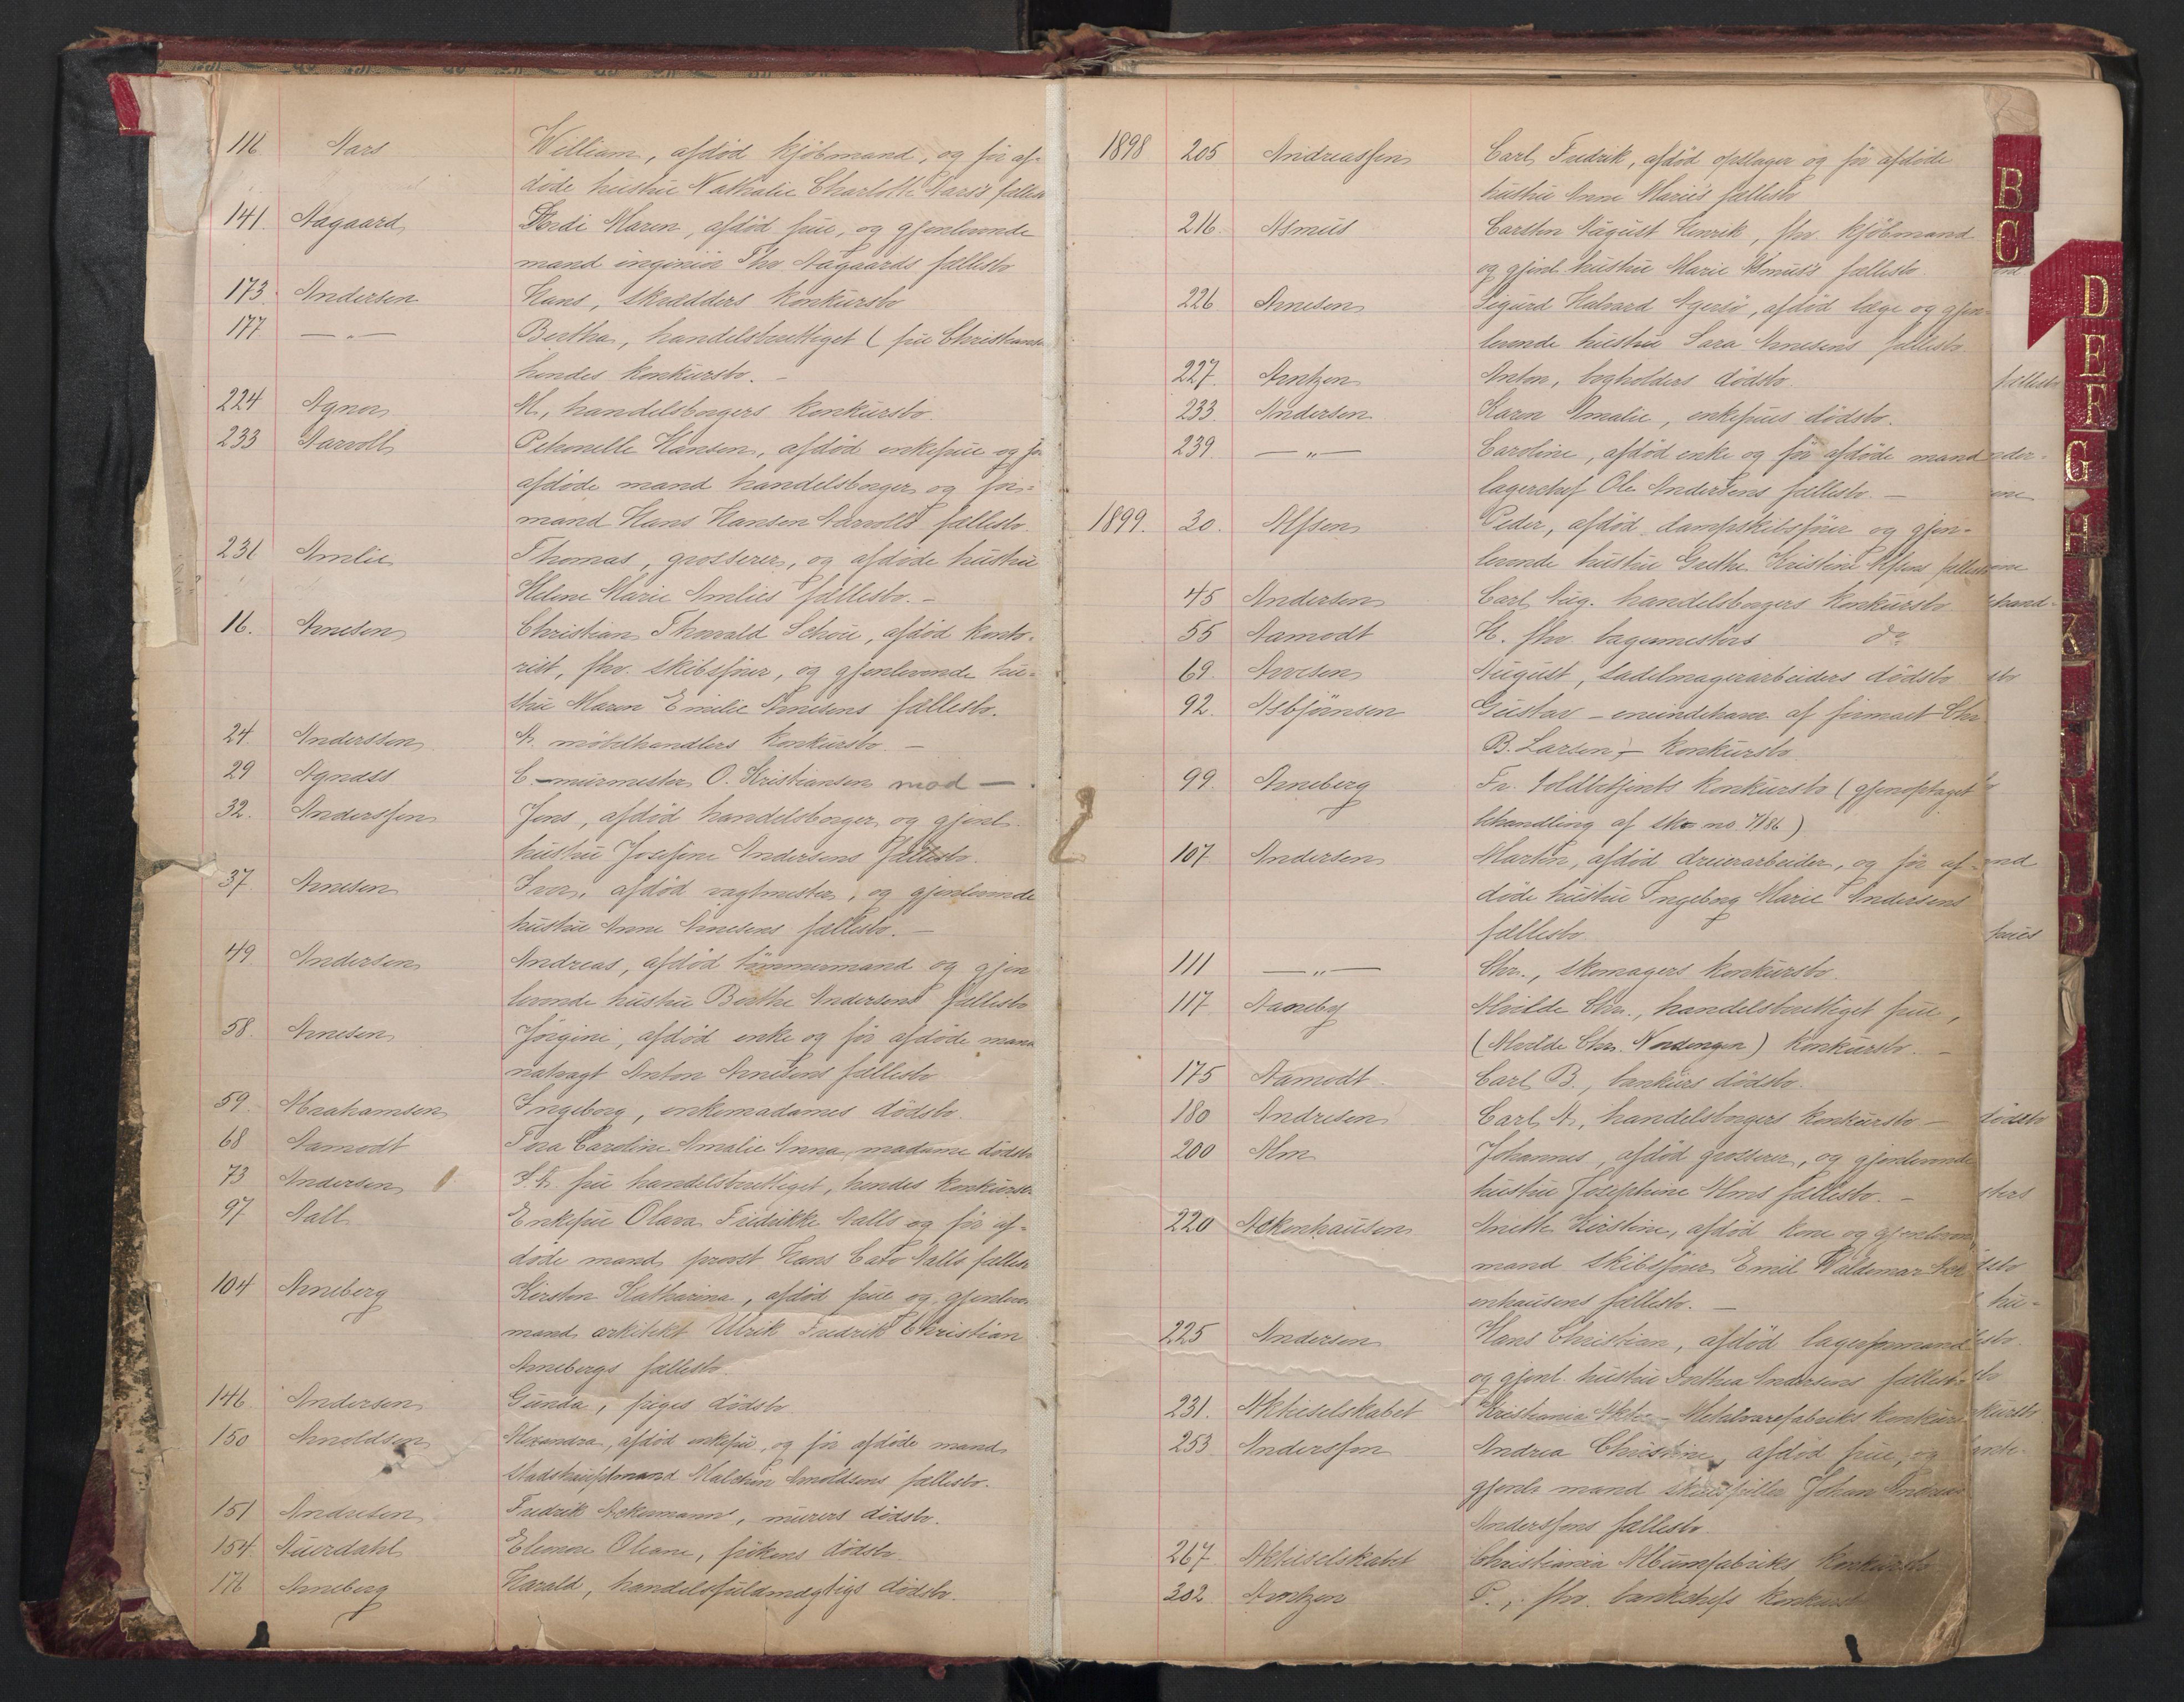 116 Aars William, afdød kjöbmand, og för af-
døde hustru Nathalie Charlotte Aars's fælles
141. Aagaard Maren, afdød frue, og gjenlevende
mand ingeniør Thv Aagaards fællesbo
173. Andersen Hans, skrædders konkursbo
177. — „ — Bertha, handelsberettiget (frue Christiansen
hendes konkursbo. —
224 Agner M, handelsborgers konkursbo.
233 Aarvoll Petronelle Hansen, afdød enkefrue og
afdøde mand handelsborger og for-
mand Hans Hansen Aarvolls fællesbo
231 Amlie Thomas, grosserer, og afdøde hustru
Helene Marie Amlies fællesbo. —
16. Arnesen Christian Thorvald Schou, afdød konto-
rist, fhv. skibsfører, og gjenlevende hu-
stru Maren Emilie Arnesens fællesbo.
24 Anderssen A. möbelhandlers konkursbo. —
29 Agnæss C. — murmester O. Kristiansen mod — .
32. Anderssen Jens, afdød handelsborger og gjenl.
hustru Josefine Andersens fællesbo.
37 Arnesen Iver, afdød vagtmester, og gjenlevende
hustru Anne Arnesens fællesbo. —
49 Andersen Andreas, afdød tömmermand og gjen
levende hustru Berthe Andersens fællesbo
58. Arnesen Jörgine, afdød enke og för afdøde mand
natvagt Anton Arnesens fællesbo
59. Abrahamsen Ingeborg, enkemadames dödsbo.
68 Aamodt Thea Caroline Amalie Anna, madame dödsbo
73 Andersen frue handelsberettiget, hendes konkursbo
97 Aall Enkefrue Olava Fredrikke Aalls og för af-
døde mand, provst Hans Cato Aalls fællesbo
104 Arneberg Kirsten Katharina, afdød frue og gjenleve
mand arkitekt Ulrik Fredrik Christian
Arnebergs fællesbo.
146. Andersen Gunda, piges dödsbo
150 Arnoldsen Alexandra, afdød enkefrue, og för afdøde mand
stadshauptmand Arnoldsens fællesbo.
151 Andresen Fredrik Ackermann, murers dödsbo.
154 Auerdahl Elenore Oleane, frökens dödsbo
176 Arneberg Harald, handelsfuldmægtigs dödsbo.
1898 205 Andreassen Carl Fredrik, afdød opslager og för afdøde
hustru Anne Marie's fællesbo
216. Asmus Carsten August Henrik, fhv. kjöbmand
og gjenl. hustru Marie Asmus's fællesbo
226 Arnesen Sigurd Halvard Agersö, afdød læge og gjen-
levende hustru Sara Arnesens fællesbo
227. Arntzen Anton, bogholders dödsbo.
233. Andersen Karen Amalie, enkefrues dödsbo.
239. — „ — Caroline, afdød enke og för afdøde mand
lagerchef Ole Andersens fællesbo. —
1899. 30. Alfsen Peder, afdød dampskibsförer og gjen-
levende hustru Grethe Kristine Alfsens fællesbo
45 Andersen Carl Aug. handelsborgers konkursbo
55 Aamodt H. fhv. bagermesters do
69. Arvesen August, sadelmagerarbeiders dödsbo
92. Asbjörnsen Gustav — eneindehaver af firmaet Chr
B. Larsen, — konkursbo.
99. Arneberg Fr. toldbetjents konkursbo (gjenoptaget
behandling af sk no 7/86)
107. Andersen Martin, afdød dreierarbeider, og för af-
døde hustru Ingeborg Marie Andersens
fællesbo
111 — „ — Chr., skomagers konkursbo.
117 Aaneby Alvilde Chr., handelsberettiget frue,
(Alvilde Chr. Nordengen) konkursbo. —
175 Aamodt Carl B., bankiers dödsbo.
180 Andresen Carl A, handelsborgers konkursbo —
200 Alm Johannes, afdød grosserer, og gjenlevende
hustru Josephine Alms fællesbo. —
220 Ackenhausen Anette Kirstine, afdød kone og gjenlevende
mand skibsförer Emil Waldemar Ack
enhausens fællesbo. —
225 Andersen Hans Christian, afdød lagerformand
og gjenl. hustru Dorthea Andersens fællesbo
231. Aktieselskabet Kristiania Aktie-Metalvarefabriks konkurs
253 Anderssen Andrea Christine, afdød frue, og
gjenlv mand skuespiller Johan Andreas
Anderssens fællesbo.
267 Aktieselskabet Christiania Albumfabriks konkursbo
302 Arntzen P., fhv. bankchefs konkurs
B
C
D
E
F
G
H
K
N
P